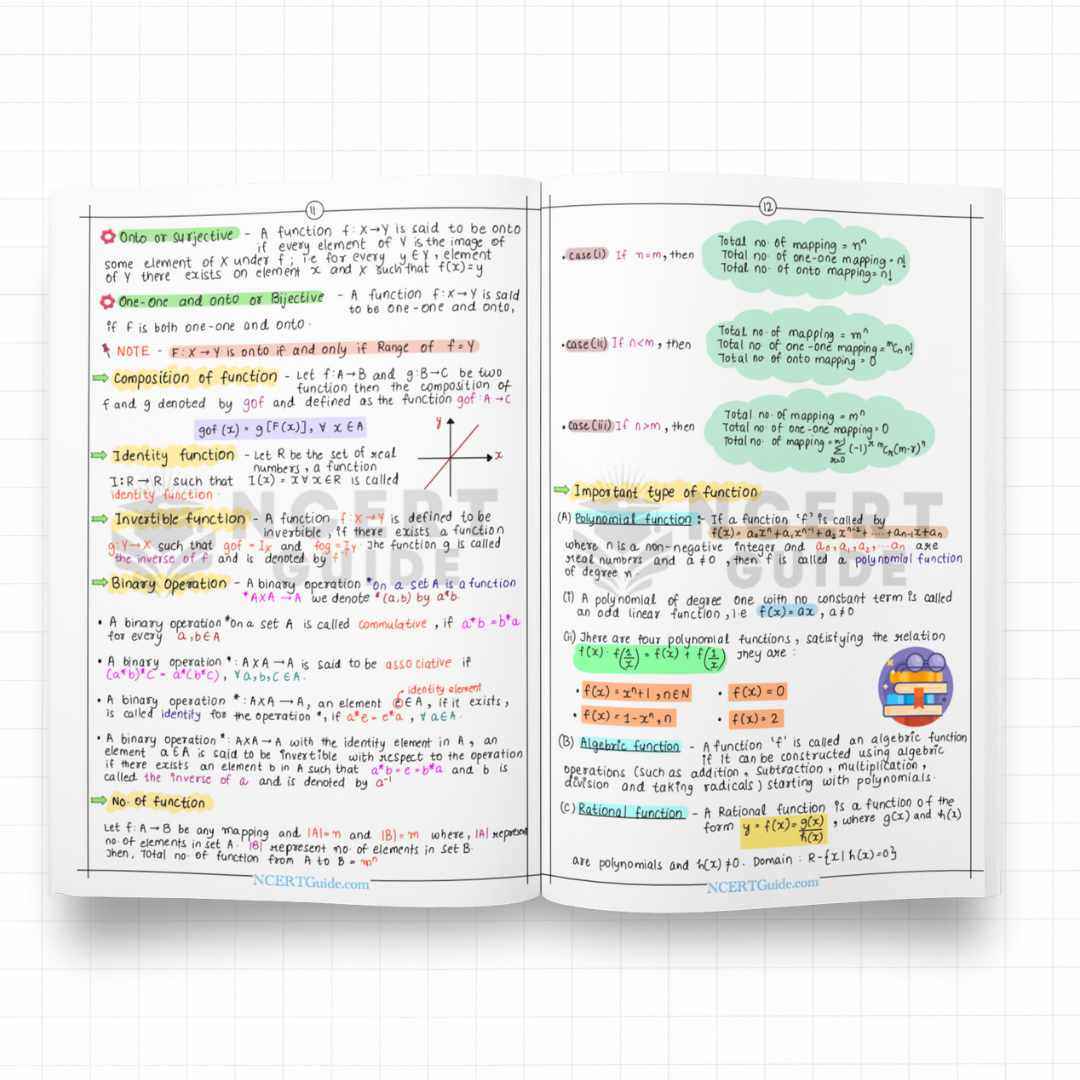 11
Onto or surjective - A function f: X→Y is said to be onto
if every element of Y is the image of
some element of X under f ; i·e for every y∈Y, element
of Y there exists on element x and X such that f(x)=y
One-One and onto or Bijective - A function f: X→Y is said
to be one-one and onto,
if F is both one-one and onto.
NOTE - F: X→Y is onto if and only if Range of f=Y
Composition of function - Let f: A→B and g: B→C be two
function then the composition of
f and g denoted by gof and defined as the function gof: A→C
gof (x) = g[F(x)], ∀ x∈A
y
x
Identity function - Let R be the set of real
numbers, a function
I: R→R such that I(x) = x ∀ x∈R is called
identity function.
Invertible function - A function f: X→Y is defined to be
invertible, if there exists a function
g: Y→X such that gof = Ix and fog = Iy. The function g is called
the inverse of f and is denoted by f⁻¹
Binary Operation - A binary operation *on a set A is a function
*A×A→A we denote *(a,b) by a*b.
• A binary operation *on a set A is called commulative, if a*b = b*a
for every a,b∈A
• A binary operation *: A×A→A is said to be associative if
(a*b)*C = a*(b*c), ∀a,b,C∈A.
identity element
• A binary operation *: A×A→A, an element e∈A, if it exists,
is called identity for the operation *, if a*e = e*a, ∀ a∈A.
• A binary operation *: A×A→A with the identity element in A, an
element a∈A is said to be invertible with respect to the operation
if there exists an element b in A such that a*b = e = b*a and b is
called the inverse of a and is denoted by a⁻¹
No. of function
Let f: A→B be any mapping and |A|=n and |B|=m where, |A| represent
no. of elements in set A. |B| represent no. of elements in set B.
Then, Total no. of function from A to B = mⁿ
NCERTGuide.com
12
• case(i) If n=m, then
Total no. of mapping = nⁿ
Total no. of one-one mapping = n!
Total no. of onto mapping = n!
• case(ii) If n<m, then
Total no. of mapping = mⁿ
Total no. of one-one mapping = ᵐCₙ n!
Total no. of onto mapping = 0
• case(iii) If n>m, then
Total no. of mapping = mⁿ
Total no. of one-one mapping = 0
Total no. of mapping = Σ (-1)ʳ ᵐCᵣ(m-r)ⁿ
Important type of function
(A) Polynomial function :- If a function 'f' is called by
f(x) = a₀xⁿ + a₁xⁿ⁻¹ + a₂xⁿ⁻² + .... + aₙ₋₁x + aₙ
where n is a non-negative integer and a₀, a₁, a₂, ... aₙ are
real numbers and a ≠ 0, then f is called a polynomial function
of degree n.
(i) A polynomial of degree one with no constant term is called
an odd linear function, i·e f(x) = ax, a≠0
(ii) There are four polynomial functions, satisfying the relation
f(x)·f(1/x) = f(x) + f(1/x) They are :
• f(x) = xⁿ+1, n∈N • f(x) = 0
• f(x) = 1-xⁿ, n • f(x) = 2
(B) Algebric function - A function 'f' is called an algebric function
if it can be constructed using algebric
operations (such as addition, Subtraction, multiplication,
division and taking radicals) starting with polynomials.
(C) Rational function - A Rational function is a function of the
form y = f(x) = g(x)/h(x), where g(x) and h(x)
are polynomials and h(x) ≠ 0. Domain : R-{x| h(x)=0}
NCERTGuide.com
NCERT
GUIDE
NCERT
GUIDE